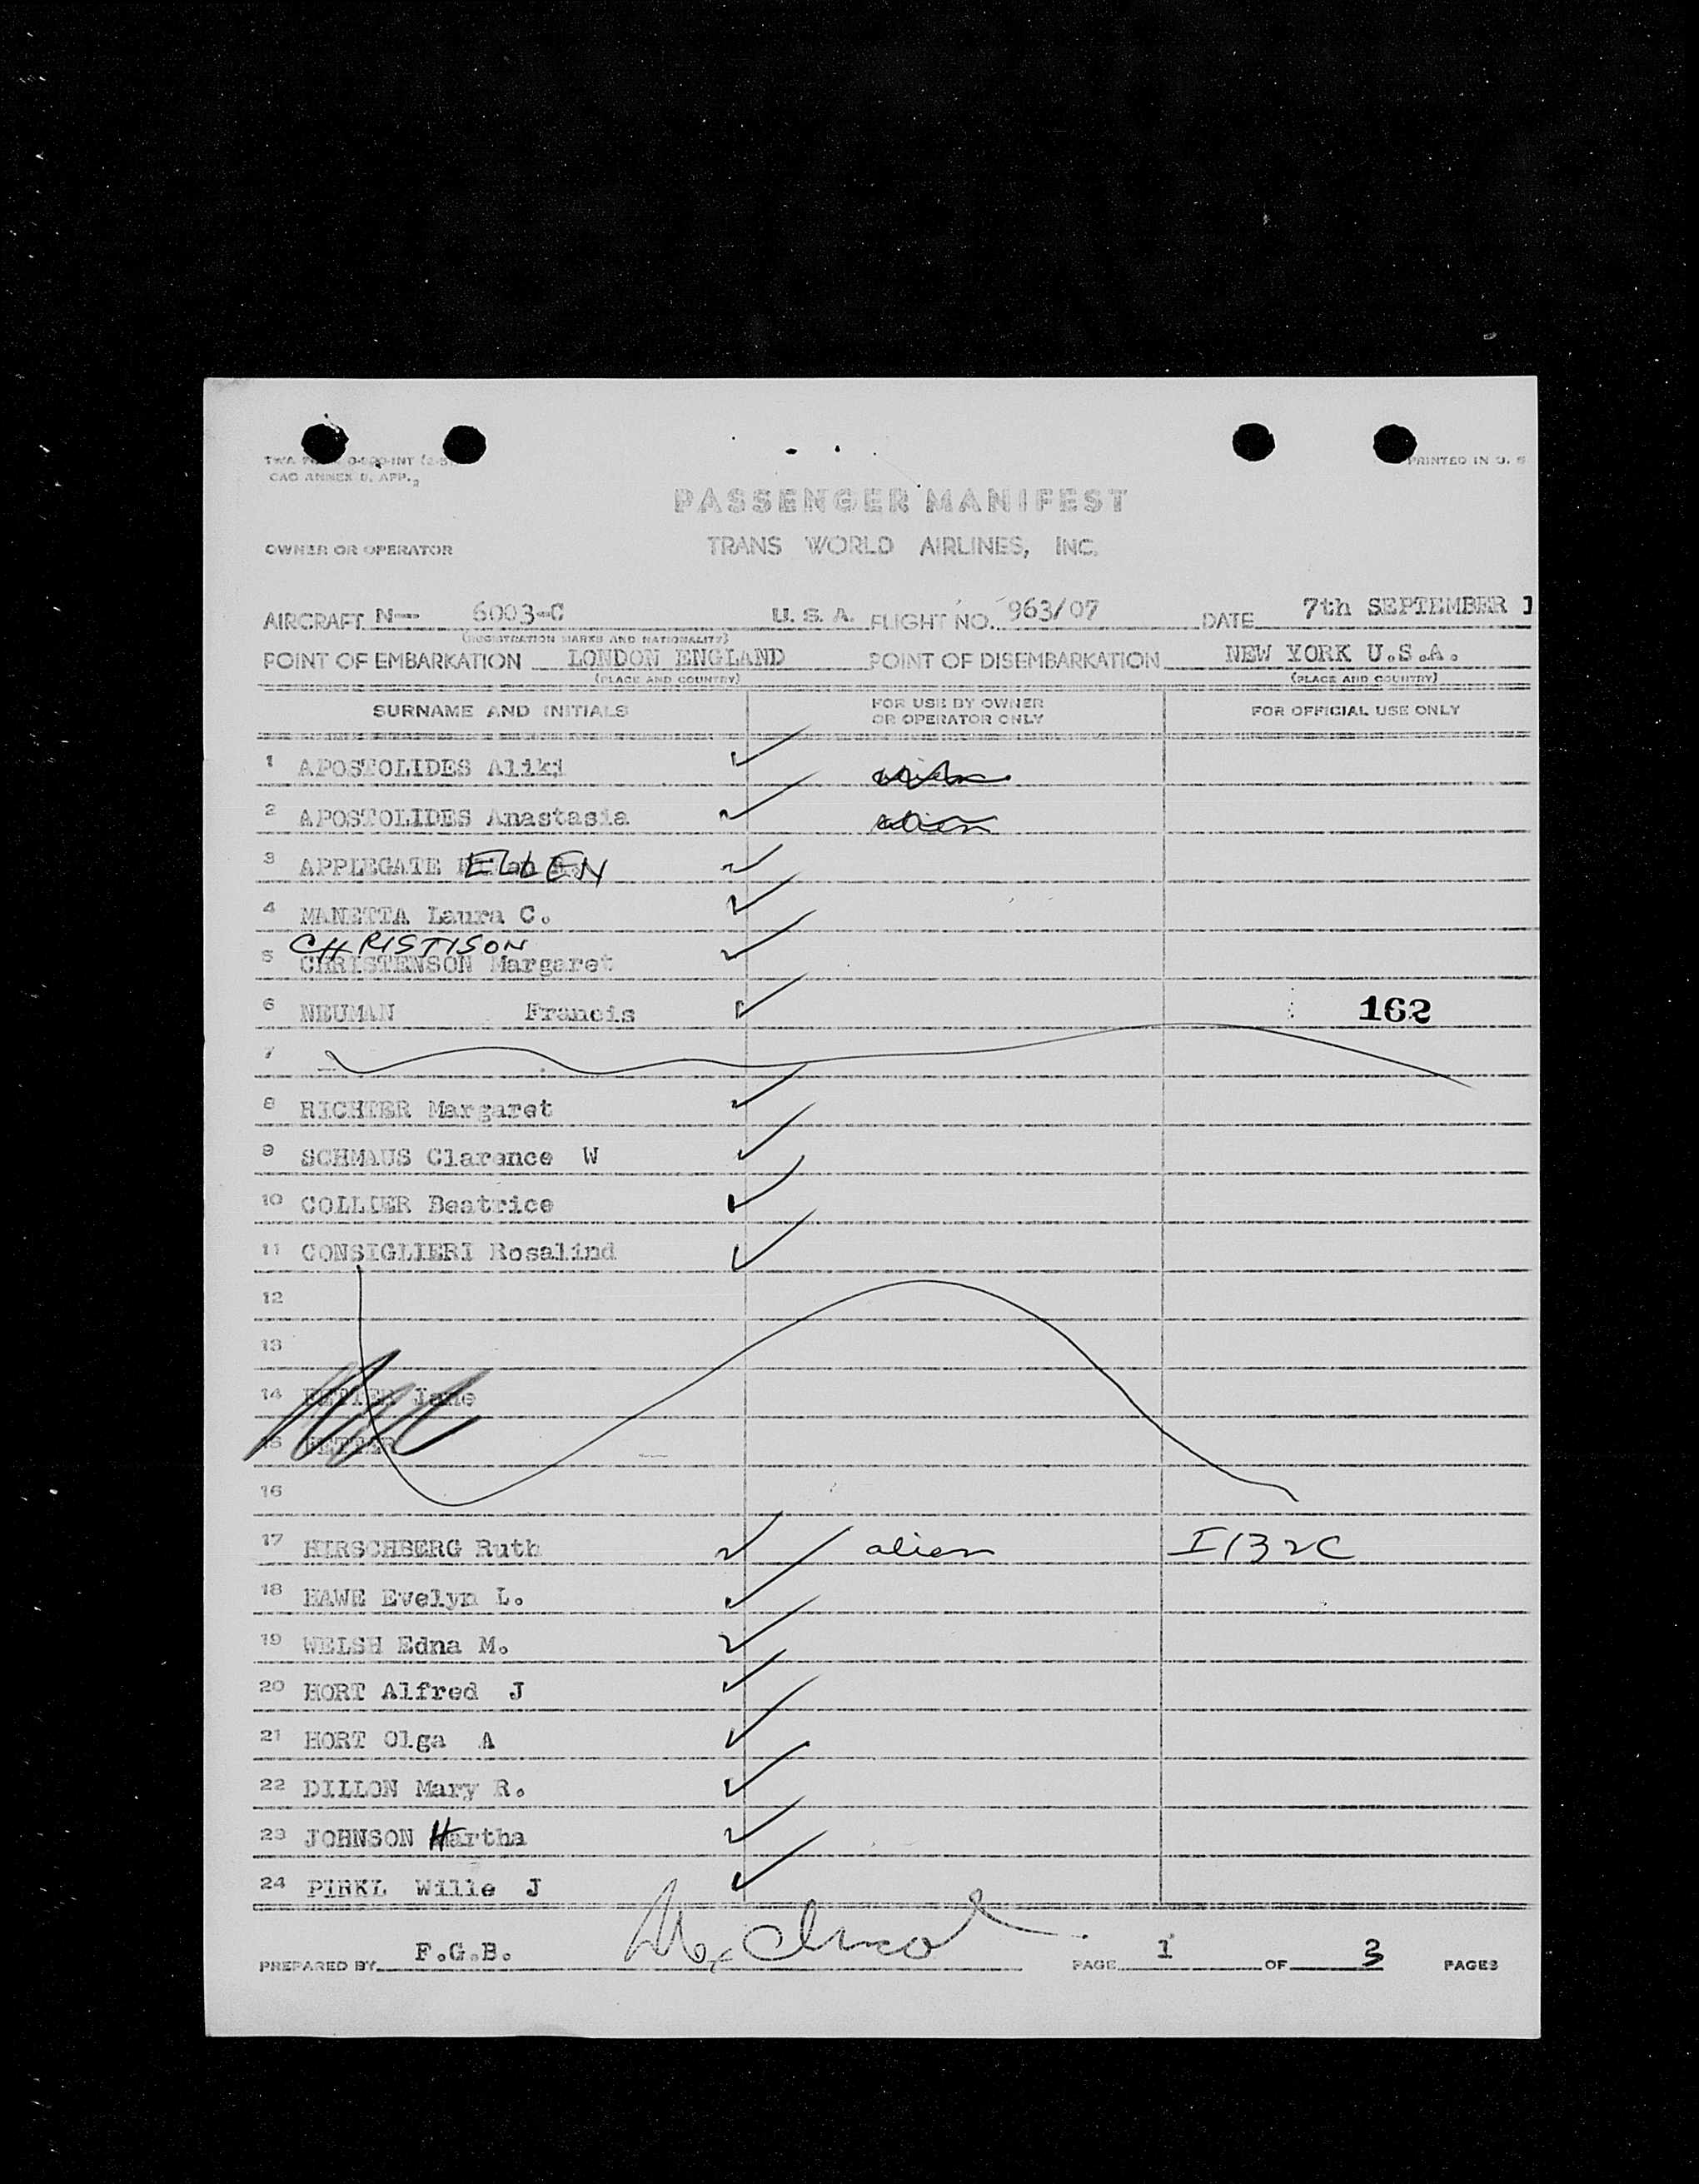 CAO ANNEX D, APP. 2
PRINTED IN U. S
PASSENGER MANIFEST
OWNER OR OPERATOR TRANS WORLD AIRLINES, INC.
AIRCRAFT N— 6003-C U. S. A. FLIGHT NO. 963/07 DATE 7th SEPTEMBER 1
(REGISTRATION MARKS AND NATIONALITY)
POINT OF EMBARKATION LONDON ENGLAND POINT OF DISEMBARKATION NEW YORK U.S.A.
(PLACE AND COUNTRY) (PLACE AND COUNTRY)
SURNAME AND INITIALS FOR USE BY OWNER OR OPERATOR ONLY FOR OFFICIAL USE ONLY
1 APOSTOLIDES Aliki alien
2 APOSTOLIDES Anastasia alien
3 APPLEGATE ELLEN
4 MANETTA Laura C.
CHRISTISON
5 CHRISTENSON Margaret
6 NEUMAN Francis 162
7
8 RICHTER Margaret
9 SCHMAUS Clarence W
10 COLLIER Beatrice
11 CONSIGLIERI Rosalind
12
13
14 Jane
15
16
17 HIRSCHBERG Ruth alien I132C
18 HAWE Evelyn L.
19 WELSH Edna M.
20 HORT Alfred J
21 HORT Olga A
22 DILLON Mary R.
23 JOHNSON Hartha
24 PIRKL Wille J
PREPARED BY F.G.B. PAGE 1 OF 3 PAGES